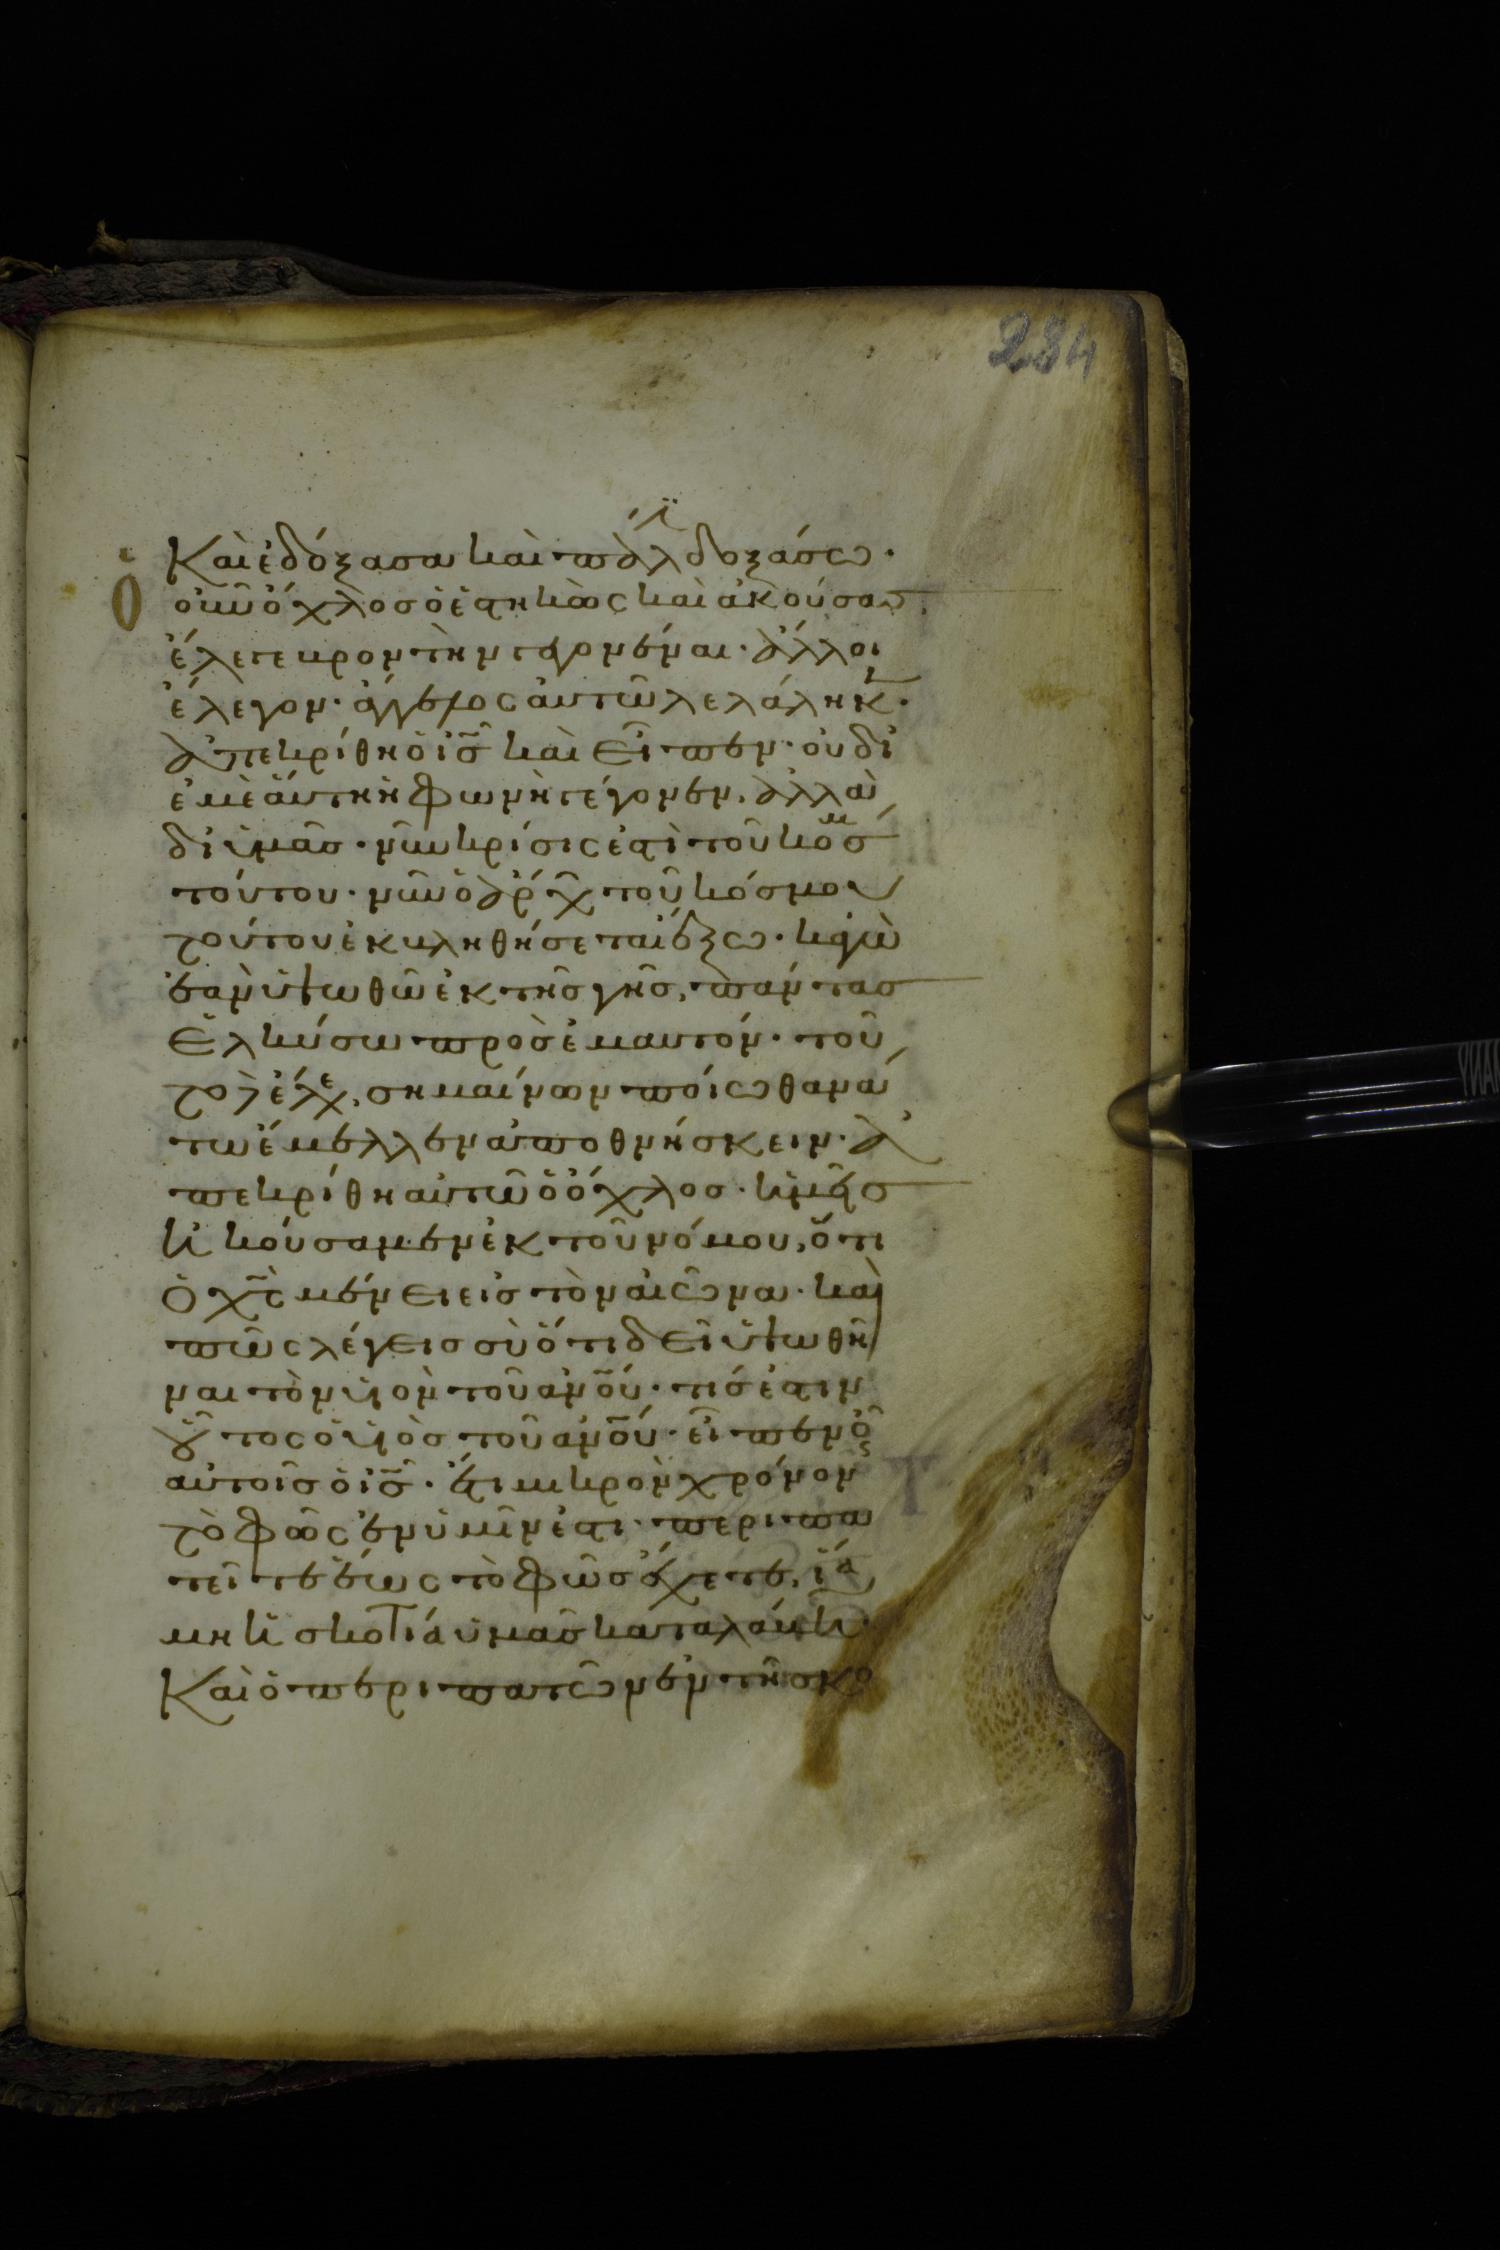 284
Καὶ ἐδόξασα καὶ πάλϊ δοξάσω·
Ὁ οὖν ὄχλος ὁ ἑστηκὼς καὶ ἀκούσας
ἔλεγε κρον τὴν γεγονέναι· ἄλλοι
ἔλεγον· ἄγγελος αὐτῶ λελάληκ·
ἀπεκρίθη ὁ ἰς̅ καὶ εἶπεν· οὐ δι
ἐμὲ ἅυτη ἡ φωνὴ γέγονεν, ἀλλὰ
δι ὑμᾶς· νῦν κρίσις ἐστὶ τοῦ κοσμ
τούτου· νῦν ὁ ἄρχ τοῦ κόσμου
τούτου ἐκβληθήσεται ἔξω· κἀγὼ
ἐὰν ὑψωθῶ ἐκ τῆς γῆς, πάντας
Ἑλκύσω πρὸς ἐμαυτόν· τοῦ
το δὲ ἔλεγε, σημαίνων ποίω θανά
τω ἔμελλεν ἀποθνήσκειν· ἀ
πεκρίθη αὐτῶ ὁ ὄχλος· ἡμεῖς
ἠκούσαμεν ἐκ τοῦ νόμου, ὅτι
ὁ χς̅ μένει εἰς τὸν αἰῶνα· καὶ
πῶς λέγεις σὺ ὅτι δεῖ ὑψωθῆ
ναι τὸν υἱὸν τοῦ ἀνου̅· τίς ἐστιν
οὗτος ὁ υἱὸς τοῦ ἀνου̅· εἶπεν οὖ
αὐτοῖς ὁ ἰς̅· ἔτι μικρὸν χρόνον
τὸ φῶς ἐν ὑμῖν ἐστι· περιπα
τεῖτε ἕως τὸ φῶς ἔχετε, ἵνα
μὴ ἡ σκοτία ὑμᾶς καταλάβη·
Καὶ ὁ περιπατῶν ἐν τῆ σκο